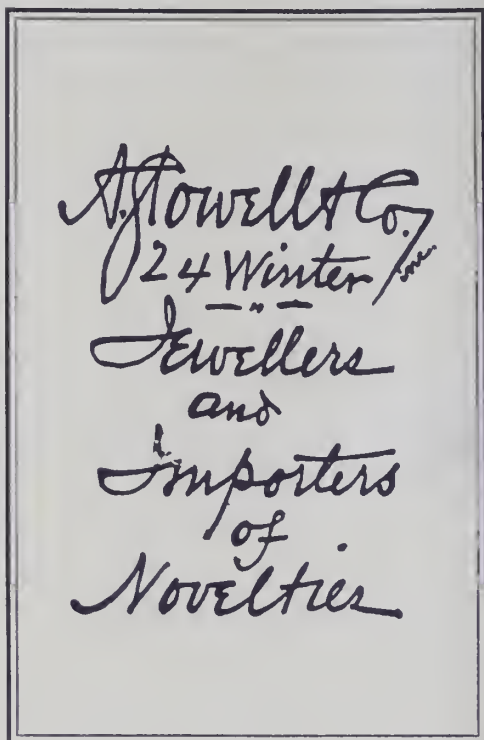 A. Stowell & Co. Inc.
24 Winter
Jewellers
and
Importers
of
Novelties